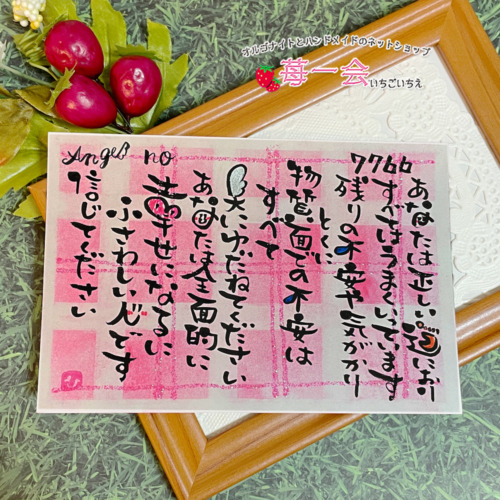 オルゴナイトとハンドメイドのネットショップ
苺一会いちごいちえ
Angel no
7766
あなたは正しい道におり
すべてはうまくいっています
残りの不安や気がかり
とくに
物質面での不安は
すべて
天にゆだねてください
あなたは全面的に
幸せになるに
ふさわしい人です
信じてください